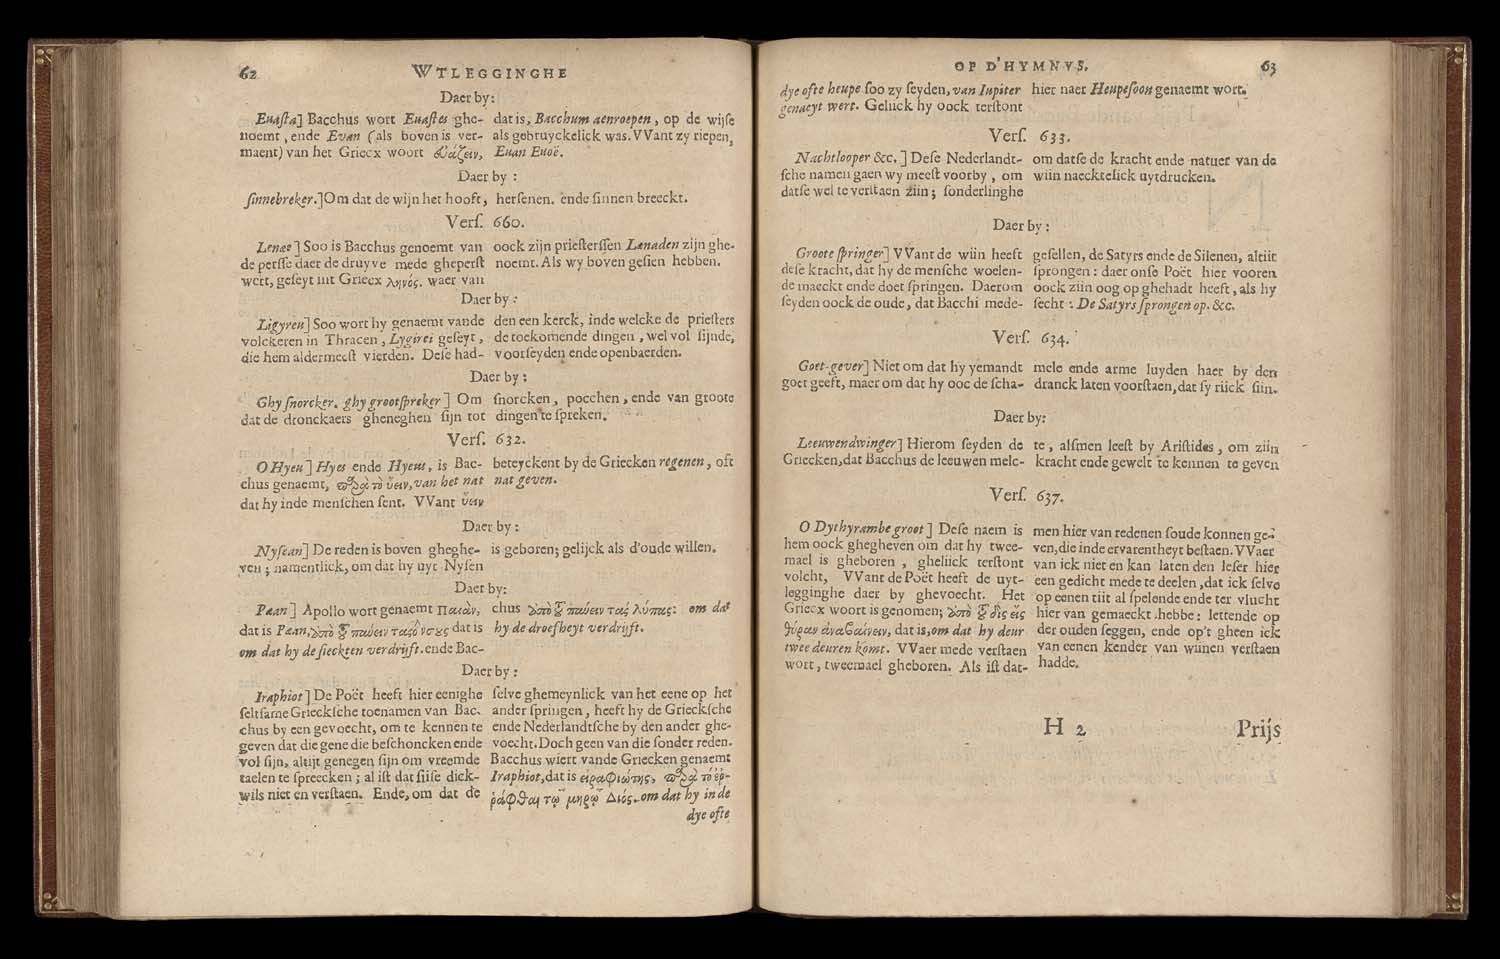 62 WTLEGGINGHE
Daer by:
Euaſta] Bacchus wort Euaſtes ghe-
noemt, ende Evan (als boven is ver-
maent) van het Griecx woort εὐάζειν,
dat is, Bacchum aenroepen, op de wijſe
als gebruyckelick was. VVant zy riepen,
Euan Euoë.
Daer by:
ſinnebreker.] Om dat de wijn het hooft,
herſenen, ende ſinnen breeckt.
Verſ. 660.
Lenæe] Soo is Bacchus genoemt van
de perſſe daer de druyve mede gheperſt
wert, geſeyt int Griecx ληνός. waer van
oock zijn prieſterſſen Lenaden zijn ghe-
noemt. Als wy boven geſien hebben.
Daer by:
Ligyreu] Soo wort hy genaemt vande
volckeren in Thracen, Lygirei geſeyt,
die hem aldermeeſt vierden. Deſe had-
den een kerck, inde welcke de prieſters
de toekomende dingen, wel vol ſijnde,
voorſeyden ende openbaerden.
Daer by:
Ghy ſnorcker, ghy grootſpreker] Om
dat de dronckaers gheneghen ſijn tot
ſnorcken, pocchen, ende van groote
dingen te ſpreken.
Verſ. 632.
O Hyeu] Hyes ende Hyeus, is Bac-
chus genaemt, παρὰ τὸ ὕειν, van het nat
dat hy inde menſchen ſent. VVant ὕειν
beteyckent by de Griecken regenen, oft
nat geven.
Daer by:
Nyſean] De reden is boven gheghe-
ven; namentlick, om dat hy uyt Nyſen
is geboren; gelijck als d'oude willen.
Daer by:
Pæan] Apollo wort genaemt Παιὰν,
dat is Pæan, ἀπὸ τοῦ παύειν τὰς νόσους dat is
om dat hy de ſieckten verdrijft. ende Bac-
chus ἀπὸ τοῦ παύειν τὰς λύπας: om dat
hy de droefheyt verdrijft.
Daer by:
Iraphiot] De Poët heeft hier eenighe
ſeltſame Grieckſche toenamen van Bac-
chus by een gevoecht, om te kennen te
geven dat die gene die beſchoncken ende
vol ſijn, altijt genegen ſijn om vreemde
taelen te ſpreecken; al iſt dat ſiiſe dick-
wils niet en verſtaen. Ende, om dat de
ſelve ghemeynlick van het eene op het
ander ſpringen, heeft hy de Griecksche
ende Nederlandtſche by den ander ghe-
voecht. Doch geen van die ſonder reden.
Bacchus wiert vande Griecken genaemt
Iraphiot, dat is εἰραφιώτης, παρὰ τὸ ἐρ-
ράφθαι τῷ μηρῷ Διός. om dat hy in de
dye ofte
OP D'HYMNVS. 63
dye ofte heupe ſoo zy ſeyden, van Iupiter
genaeyt wert. Geliick hy oock terſtont
hier naer Heupeſoon genaemt wort.
Verſ. 633.
Nachtlooper &c.] Deſe Nederlandt-
ſche namen gaen wy meeſt voorby, om
datſe wel te verſtaen ziin; ſonderlinghe
om datſe de kracht ende natuer van de
wiin naeckteliick uytdrucken.
Daer by:
Groote ſpringer] VVant de wiin heeft
deſe kracht, dat hy de menſche woelen-
de maeckt ende doet ſpringen. Daerom
ſeyden oock de oude, dat Bacchi mede-
geſellen, de Satyrs ende de Silenen, altiit
ſprongen: daer onſe Poët hier vooren
oock ziin oog op ghehadt heeft, als hy
ſecht: De Satyrs ſprongen op. &c.
Verſ. 634.
Goet-gever] Niet om dat hy yemandt
goet geeft, maer om dat hy ooc de ſcha-
mele ende arme luyden haer by den
dranck laten voorſtaen, dat ſy riick ſiin.
Daer by:
Leeuwendwinger] Hierom ſeyden de
Griecken, dat Bacchus de leeuwen melc-
te, alſmen leeſt by Ariſtides, om ziin
kracht ende gewelt te kennen te geven
Verſ. 637.
O Dythyrambe groot] Deſe naem is
hem oock ghegheven om dat hy twee-
mael is gheboren, gheliick terſtont
volcht, VVant de Poët heeft de uyt-
legginghe daer by ghevoecht. Het
Griecx woort is genomen; ἀπὸ τοῦ δὶς εἰς
θύραν ἀναβαίνειν, dat is, om dat hy deur
twee deuren komt. VVaer mede verſtaen
wort, tweemael gheboren. Als iſt dat-
men hier van redenen ſoude konnen ge-
ven, die inde ervarentheyt beſtaen. VVaer
van ick niet en kan laten den leſer hier
een gedicht mede te deelen, dat ick ſelve
op eenen tiit al ſpelende ende ter vlucht
hier van gemaeckt hebbe: lettende op
der ouden ſeggen, ende op't gheen ick
van eenen kender van wiinen verſtaen
hadde.
H 2 Prijs